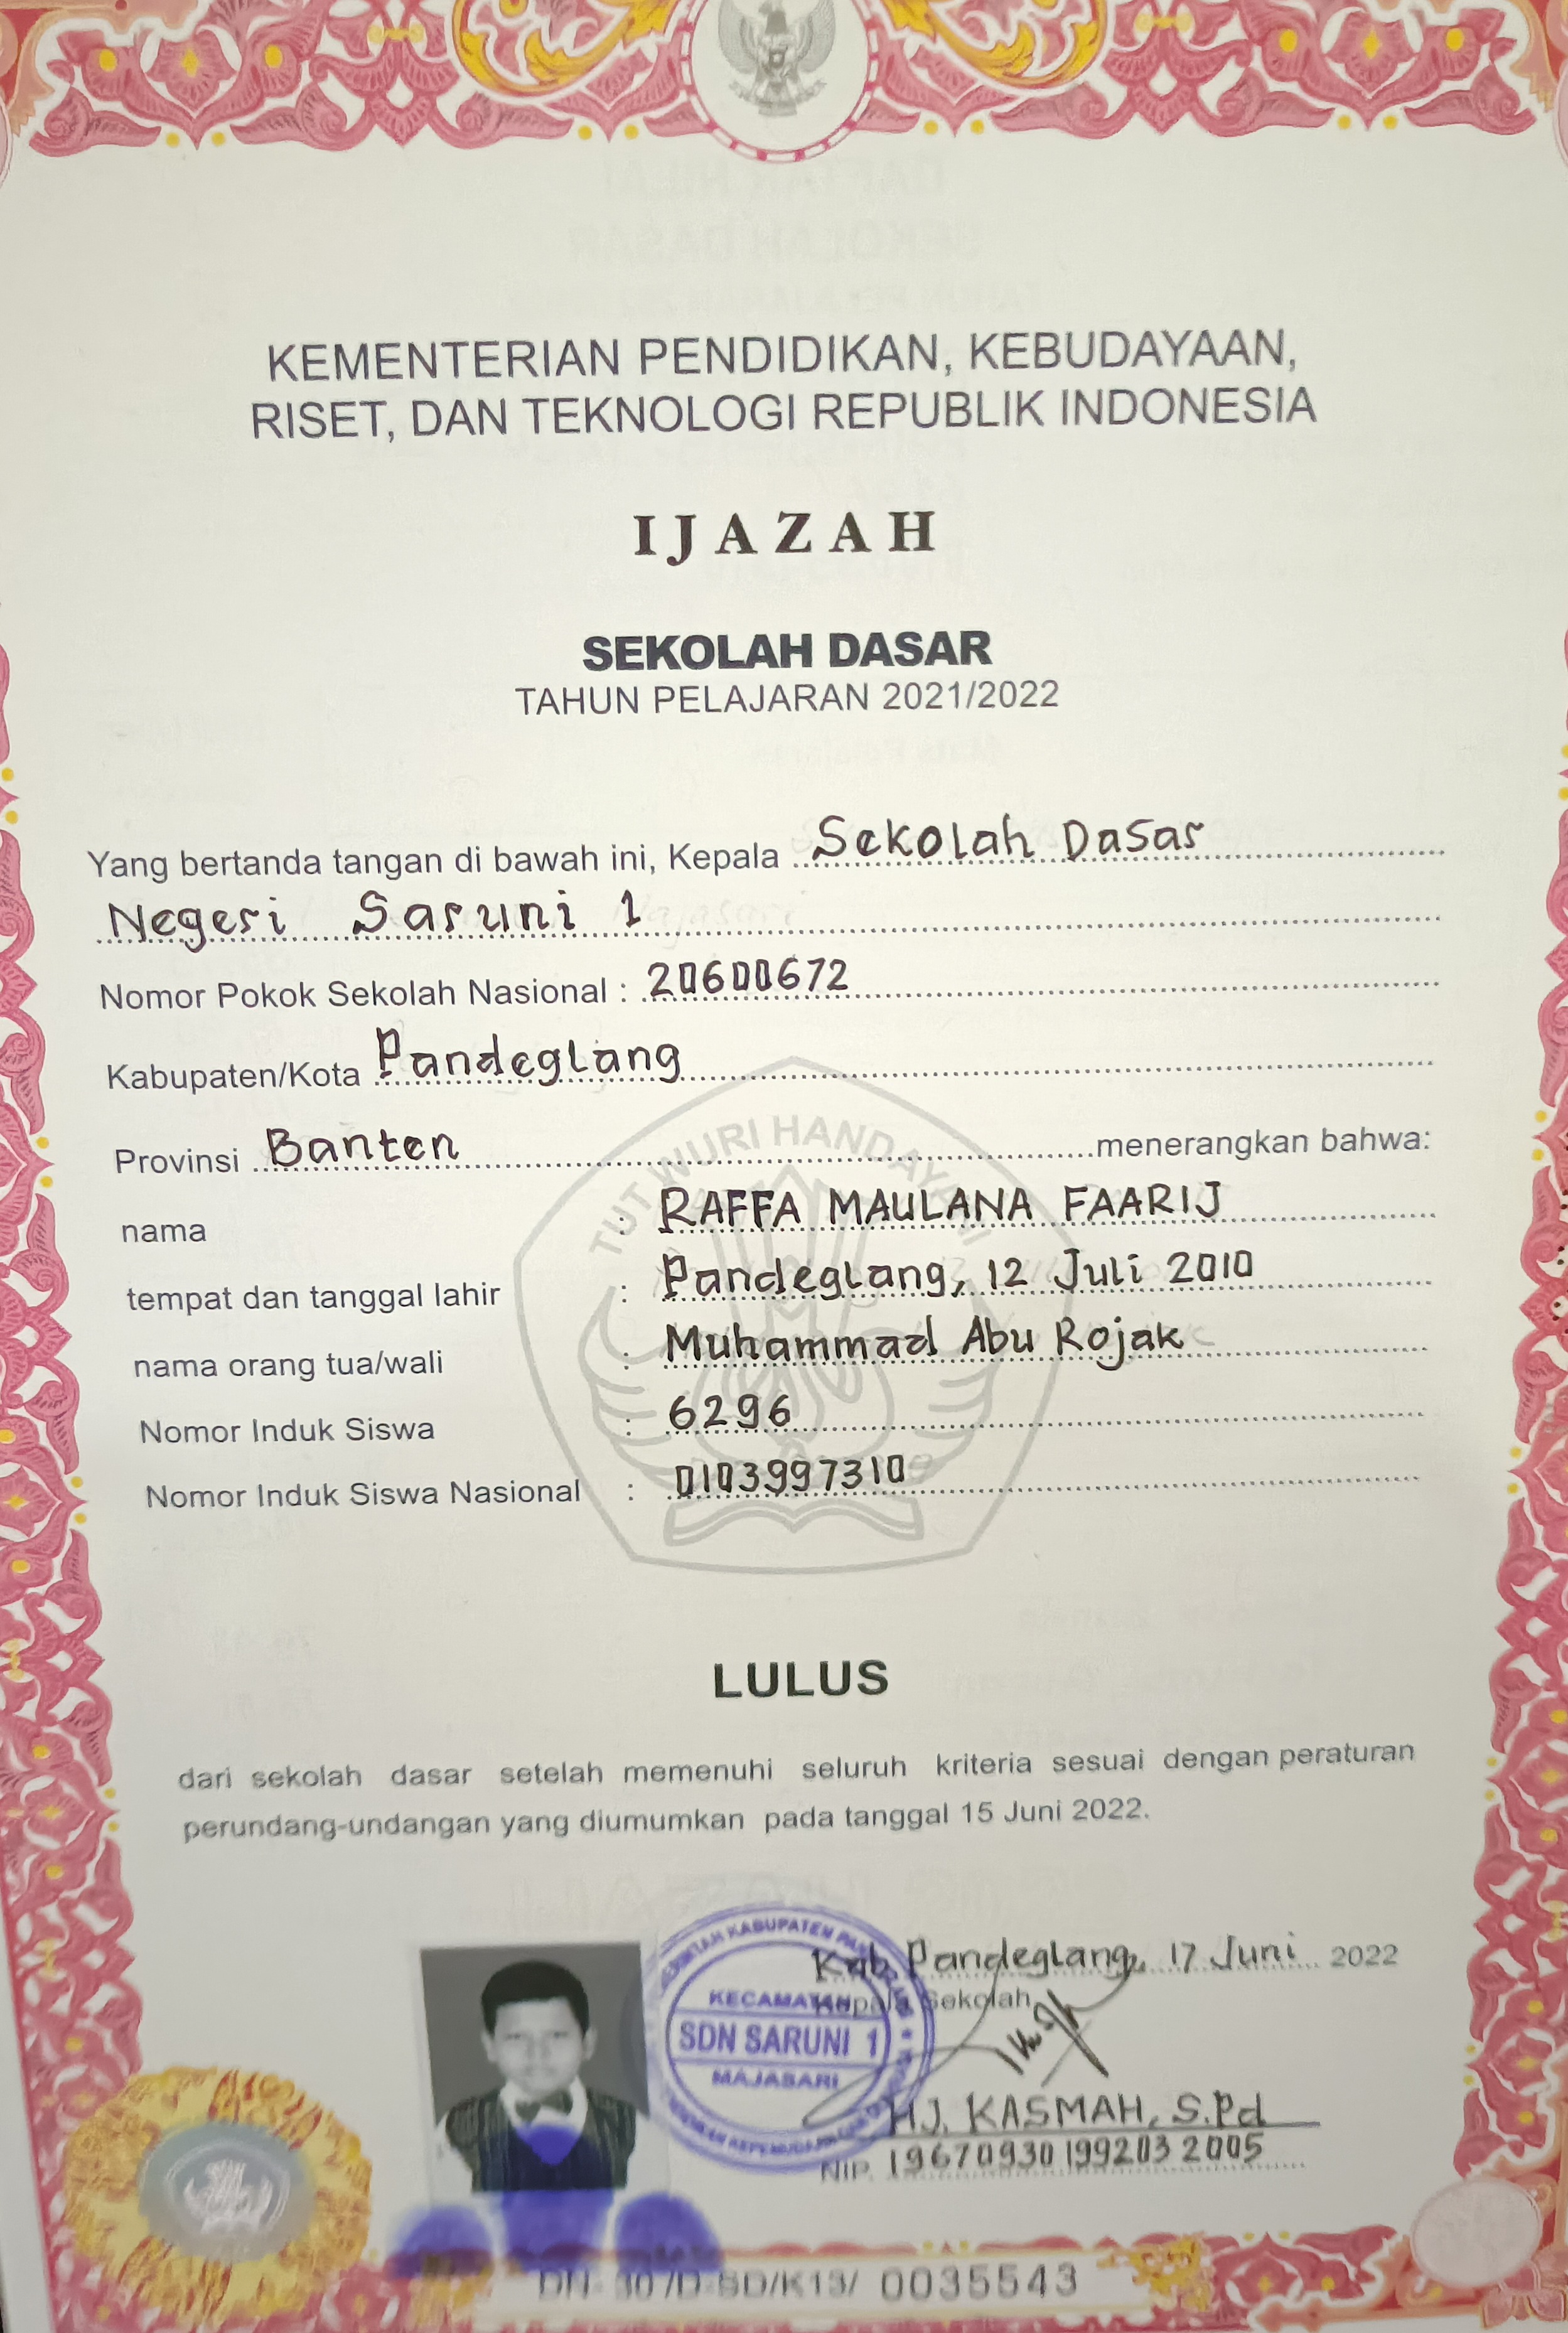 KEMENTERIAN PENDIDIKAN, KEBUDAYAAN,
RISET, DAN TEKNOLOGI REPUBLIK INDONESIA
IJAZAH
SEKOLAH DASAR
TAHUN PELAJARAN 2021/2022
Yang bertanda tangan di bawah ini, Kepala Sekolah Dasar
Negeri Saruni 1
Nomor Pokok Sekolah Nasional : 20600672
Kabupaten/Kota Pandeglang
Provinsi Banten menerangkan bahwa:
TUT WURI HANDAYANI
nama : RAFFA MAULANA FAARIJ
tempat dan tanggal lahir : Pandeglang, 12 Juli 2010
nama orang tua/wali : Muhammad Abu Rojak
Nomor Induk Siswa : 6296
Nomor Induk Siswa Nasional : 0103997310
LULUS
dari sekolah dasar setelah memenuhi seluruh kriteria sesuai dengan peraturan
perundang-undangan yang diumumkan pada tanggal 15 Juni 2022.
Kab. Pandeglang, 17 Juni 2022
Kepala Sekolah,
KECAMATAN
SDN SARUNI 1
MAJASARI
HJ. KASMAH, S.Pd
NIP. 19670930 199203 2005
DN- 30 /D-SD/K13/ 0035543